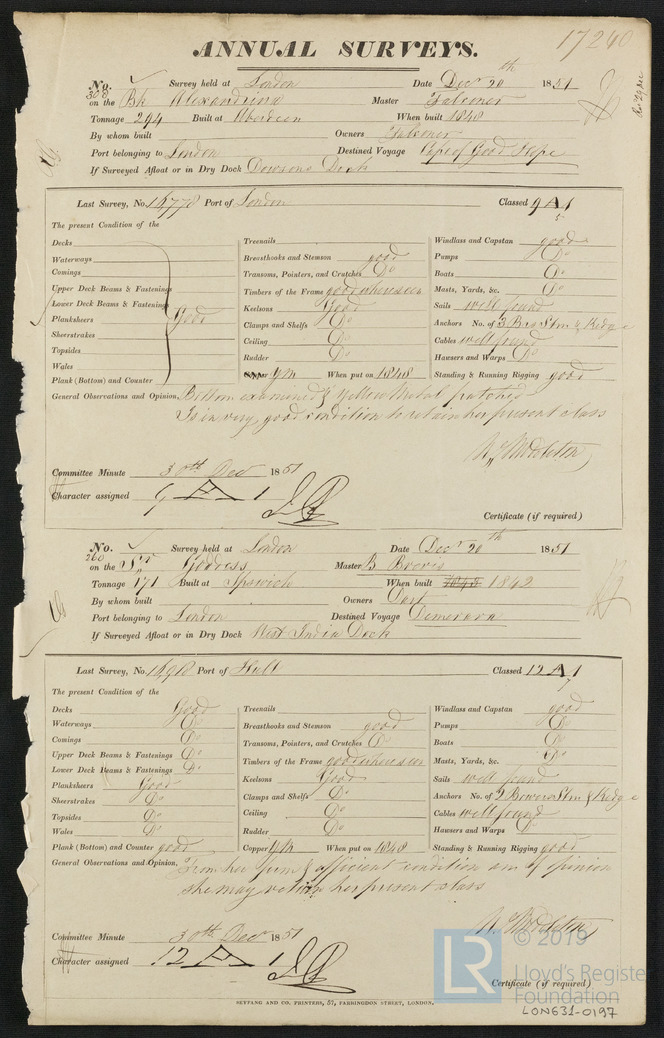 17240
ANNUAL SURVEYS.
No. 308 Survey held at London Date Decr 20th 1851
on the Bk Alexandrina Master Falconer
Tonnage 294 Built at Aberdeen When built 1848
By whom built Owners Falconer
Port belonging to London Destined Voyage Cape of Good Hope
If Surveyed Afloat or in Dry Dock Dowsons Dock
Last Survey, No. 16778 Port of London Classed 9 A 1
5
The present Condition of the
Decks
Waterways
Comings
Upper Deck Beams & Fastenings
Lower Deck Beams & Fastenings
Planksheers Good
Sheerstrakes
Topsides
Wales
Plank (Bottom) and Counter
Treenails
Breasthooks and Stemson good
Transoms, Pointers, and Crutches Do
Timbers of the Frame good where seen
Keelsons Good
Clamps and Shelfs Do
Ceiling Do
Rudder Do
YM When put on 1848
Windlass and Capstan good
Pumps Do
Boats Do
Masts, Yards, &c. Do
Sails well found
Anchors No. of 3 Brs Stm & Kedge
Cables well found
Hawsers and Warps Do
Standing & Running Rigging good
General Observations and Opinion, Bottom examined & Yellow Metal patched
Is in very good condition to retain her present class
Middleton
Committee Minute 30th Decr 1851
Character assigned 9 A 1
Certificate (if required)
No. 260 Survey held at London Date Decr 20th 1851
on the Sr Goddess Master B Brovis
Tonnage 171 Built at Ipswich When built 1848 1842
By whom built Owners Dart
Port belonging to London Destined Voyage Demerara
If Surveyed Afloat or in Dry Dock West India Dock
Last Survey, No. Port of Hull Classed 12 A 1
7
The present Condition of the
Decks Good
Waterways Do
Comings Do
Upper Deck Beams & Fastenings Do
Lower Deck Beams & Fastenings Do
Planksheers Good
Sheerstrakes Do
Topsides Do
Wales Do
Plank (Bottom) and Counter good
Treenails
Breasthooks and Stemson good
Transoms, Pointers, and Crutches Do
Timbers of the Frame good where seen
Keelsons Good
Clamps and Shelfs Do
Ceiling Do
Rudder Do
Copper YM When put on 1848
Windlass and Capstan good
Pumps Do
Boats Do
Masts, Yards, &c. Do
Sails well found
Anchors No. of 2 Bowers Stm & Kedge
Cables well found
Hawsers and Warps Do
Standing & Running Rigging good
General Observations and Opinion, From her firm & efficient condition am of opinion
she may retain her present class
Middleton
Committee Minute 30th Decr 1851
Character assigned 12 A 1
Certificate (if required)
SEYFANG AND CO. PRINTERS, 57, FARRINGDON STREET, LONDON.
LR © 2019
Lloyd's Register
Foundation
LON631-0197